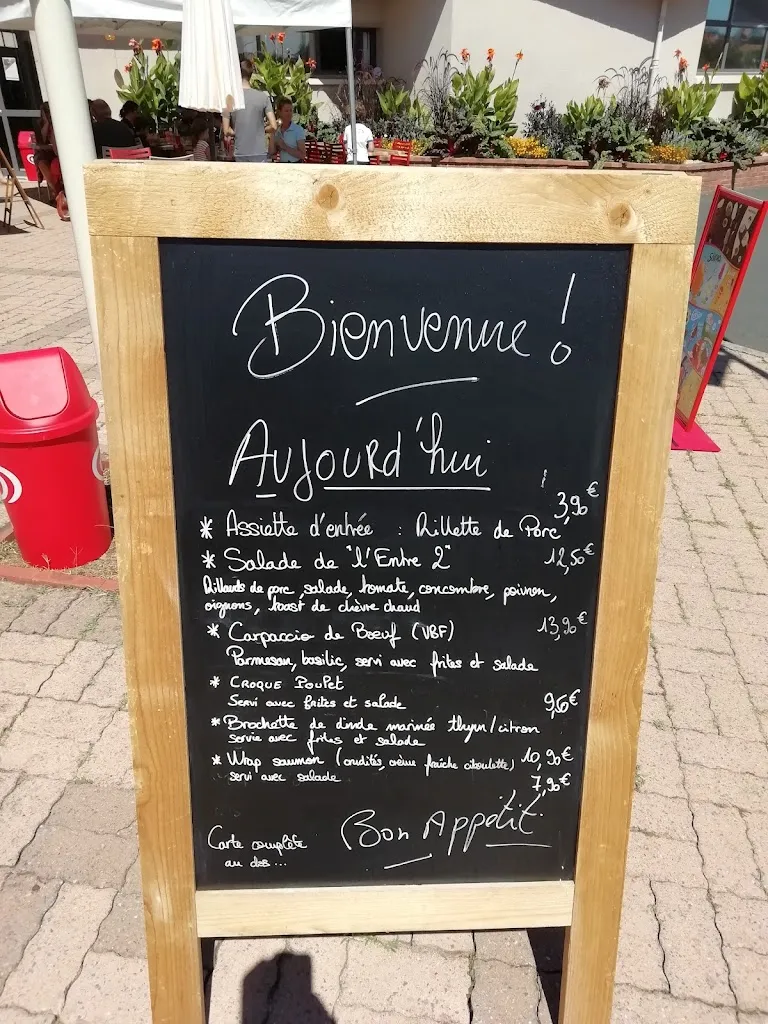 Bienvenue !
Aujourd'hui
* Assiette d'entrée : Rillette de Porc 3,90€
* Salade de "l'Entre 2" 12,50€
Rillauds de porc, salade, tomate, concombre, poivron,
oignons, toast de chèvre chaud
* Carpaccio de Bœuf (VBF) 13,90€
Parmesan, basilic, servi avec frites et salade
* CROQUE POULET
Servi avec frites et salade 9,60€
* Brochette de dinde marinée thym/citron
servie avec frites et salade
* Wrap saumon (crudités, crème fraîche ciboulette) 10,90€
servi avec salade 7,90€
Bon Appétit
Carte complète
au dos...